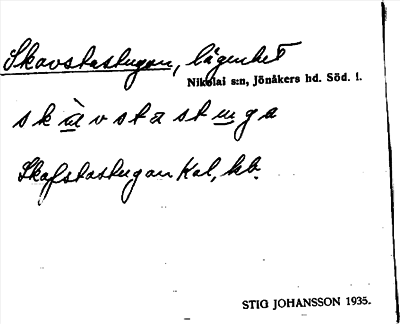 Skavstastugan, lägenhet
Nikolai s:n, Jönåkers hd. Söd. l.
skàvstastuga
Skafstastugan Kal, kb.
STIG JOHANSSON 1935.